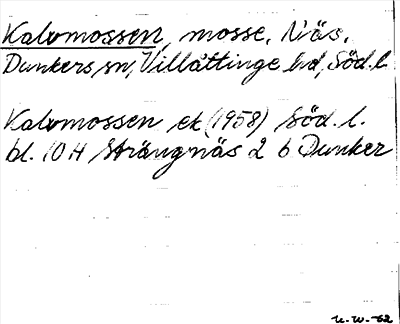 Kalvmossen, mosse, N. Näs,
Dunkers sn, Villåttinge hd, Söd.l.
Kalvmossen ek (1958) Söd. l.
bl. 10 H Strängnäs 2 b Dunker